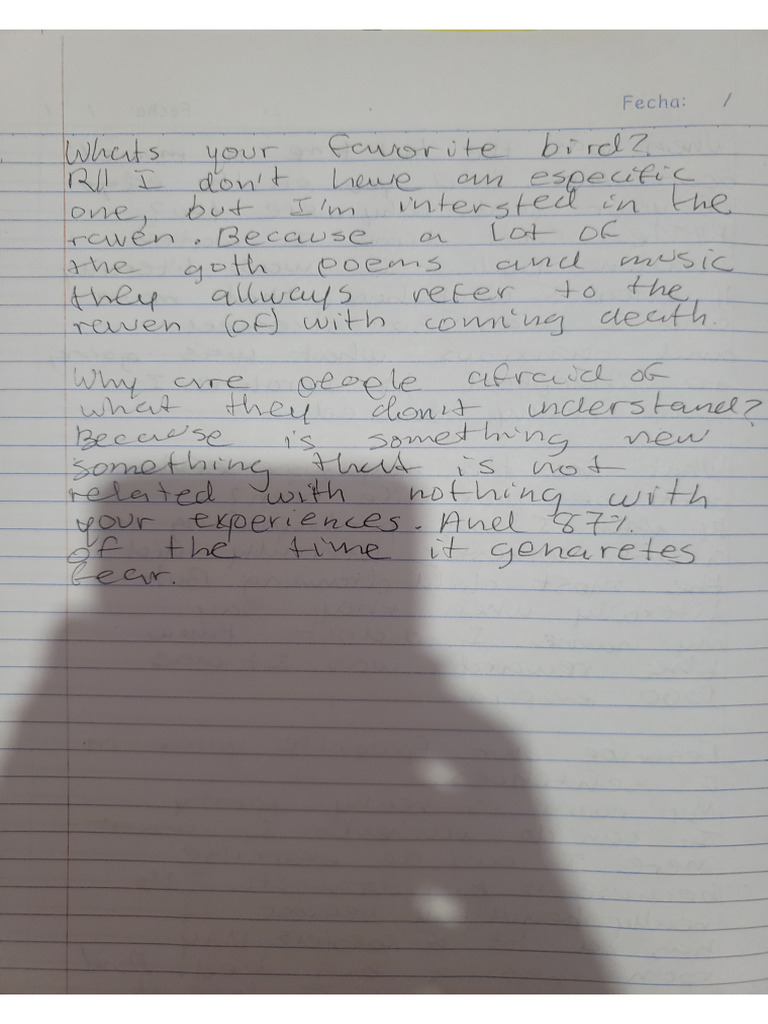 Fecha: /
Whats your favorite bird?
R// I don't have an especific
one, but I'm intersted in the
raven. Because a lot of
the goth poems and music
they allways refer to the
raven (of) with coming death.
Why are people afraid of
what they don't understand?
Because is something new
something that is not
related with nothing with
your experiences. And 87%
of the time it genaretes
fear.